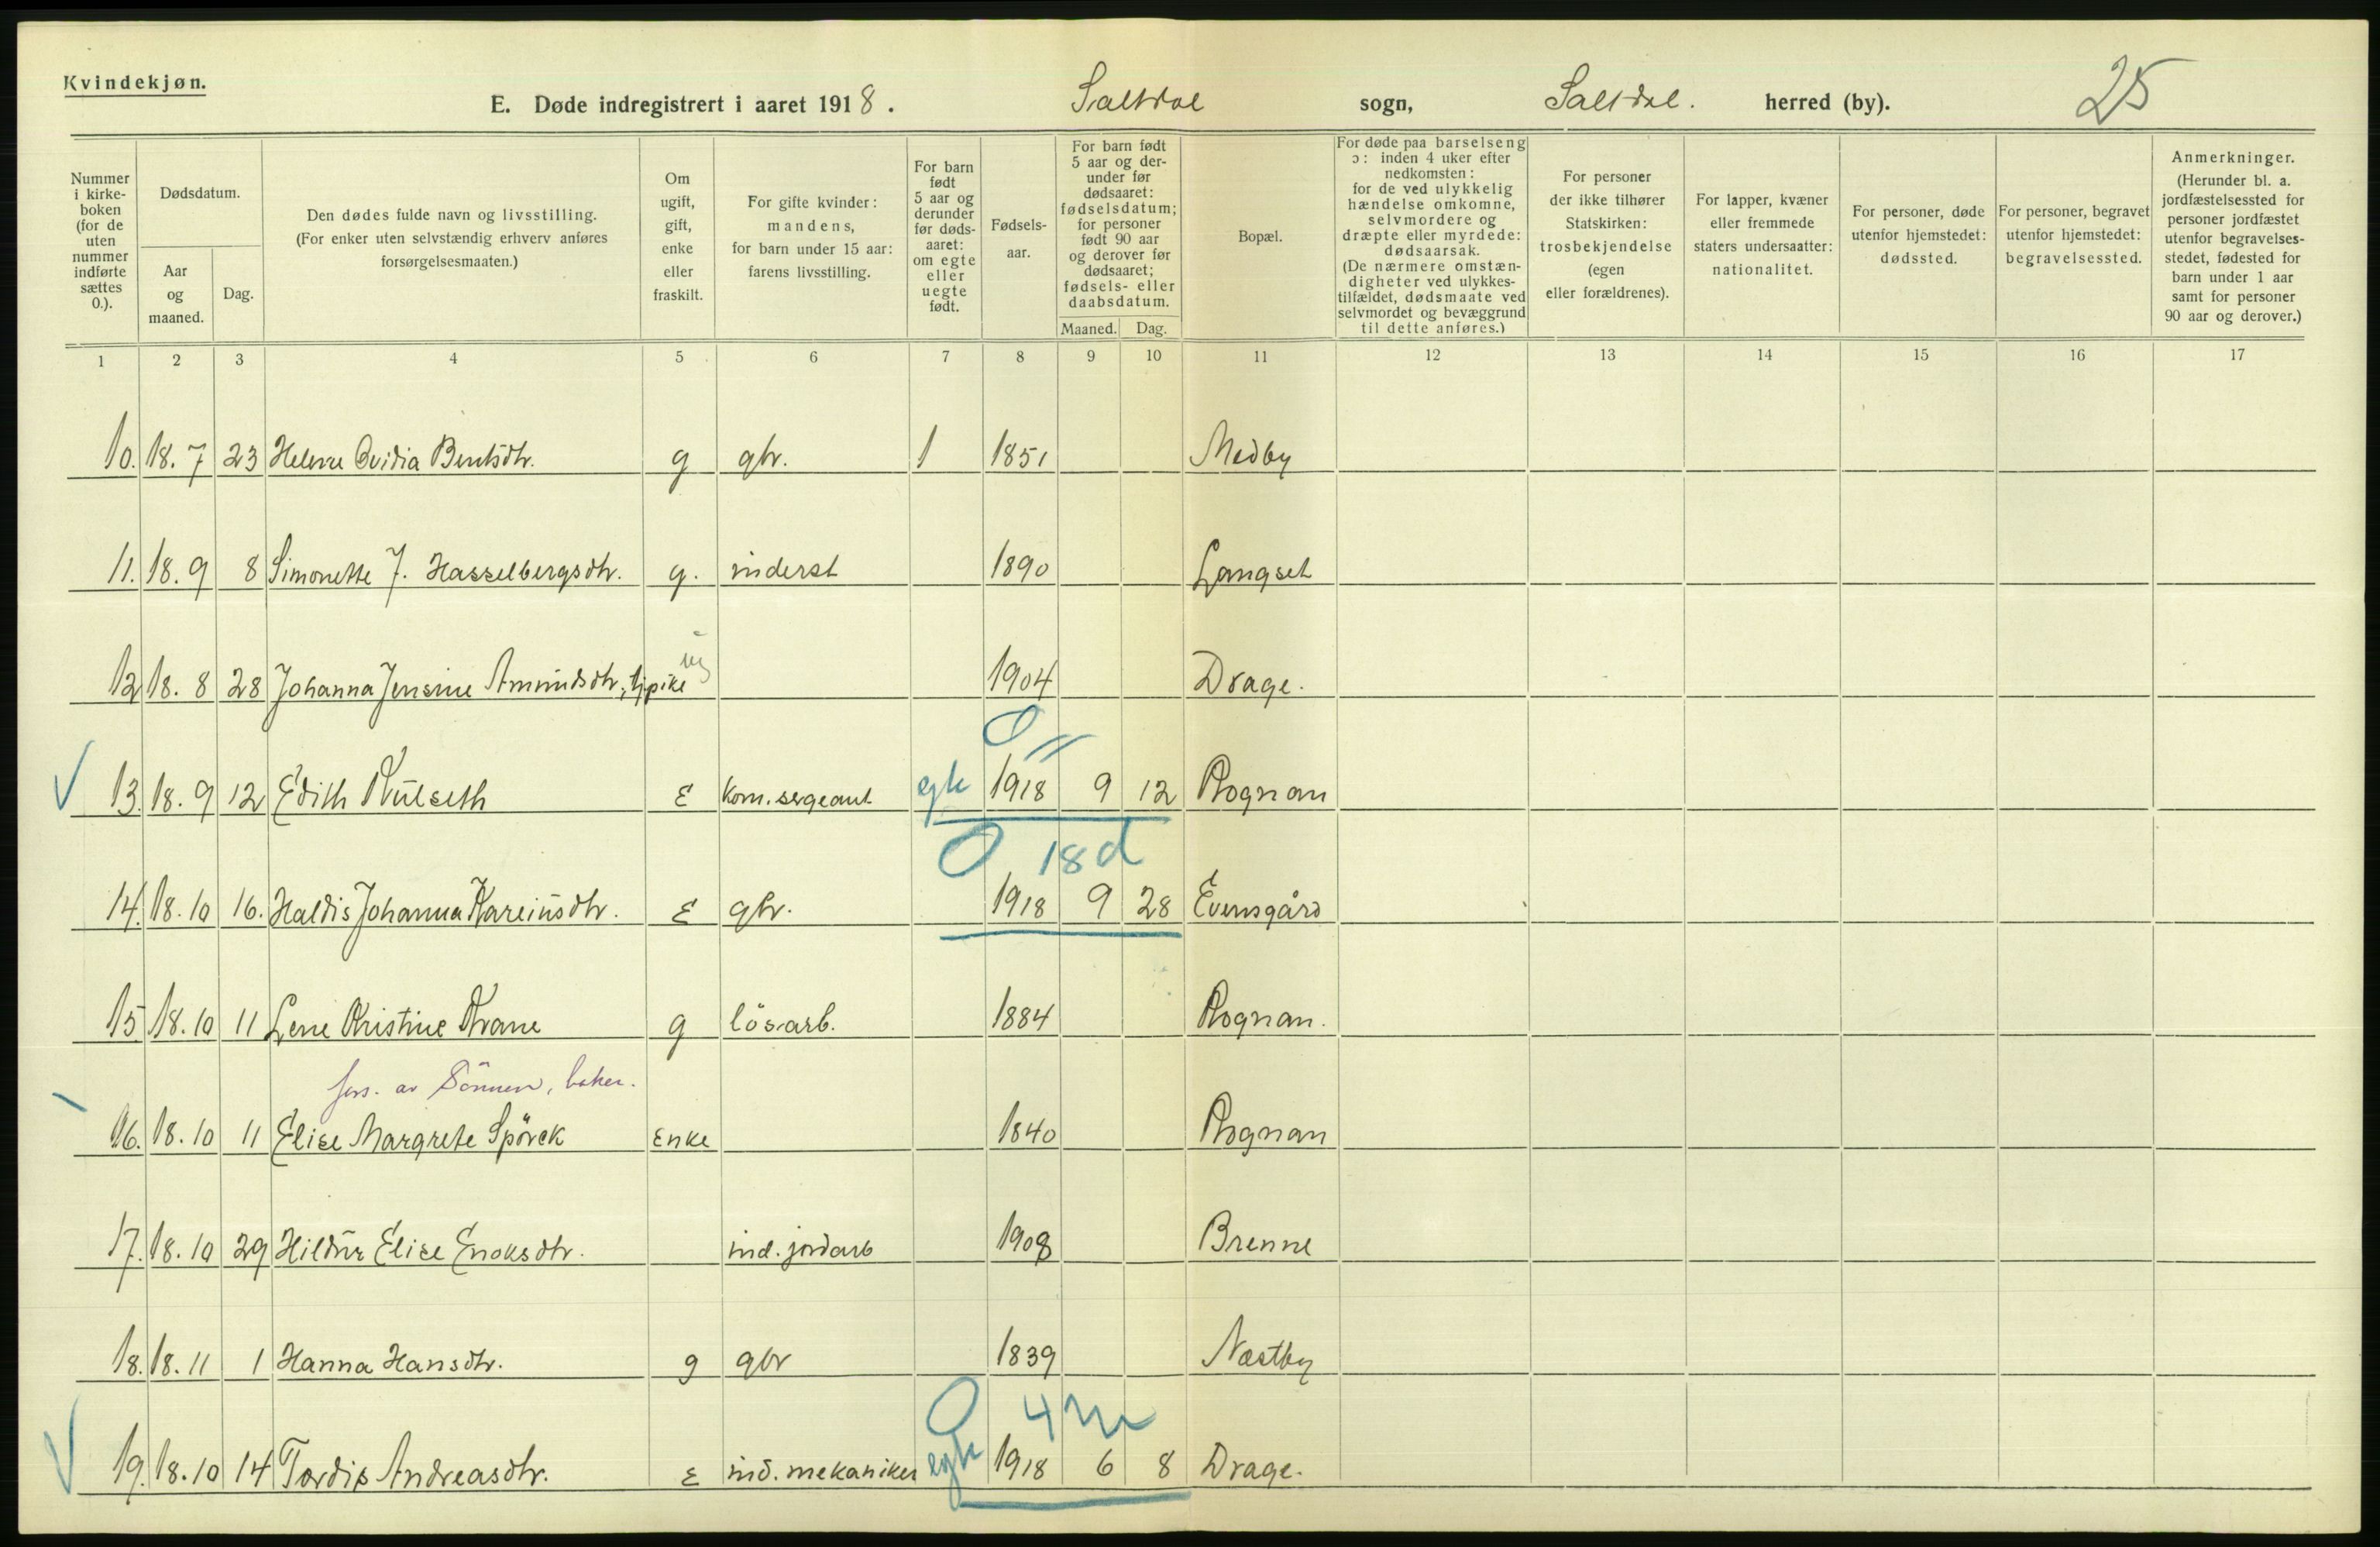 Kvindekjøn.
E. Døde indregistrert i aaret 1918. Saltdal sogn, Saltdal. herred (by). 25
Nummer i kirke-boken (for de uten nummer indførte sættes 0.).
Dødsdatum.
Aar og maaned.
Dag.
Den dødes fulde navn og livsstilling.
(For enker uten selvstændig erhverv anføres
forsørgelsesmaaten.)
Om ugift, gift, enke eller fraskilt.
For gifte kvinder: mandens, for barn under 15 aar: farens livsstilling.
For barn født 5 aar og derunder før døds-aaret: om egte eller uegte født.
Fødsels-aar.
For barn født 5 aar og der-under før dødsaaret: fødselsdatum; for personer født 90 aar og derover før dødsaaret; fødsels- eller daabsdatum.
Maaned. Dag.
Bopæl.
For døde paa barselseng ɔ: inden 4 uker efter nedkomsten: for de ved ulykkelig hændelse omkomne, selvmordere og dræpte eller myrdede: dødsaarsak. (De nærmere omstæn-digheter ved ulykkes-tilfældet, dødsmaate ved selvmordet og bevæggrund til dette anføres.)
For personer der ikke tilhører Statskirken: trosbekjendelse (egen eller forældrenes).
For lapper, kvæner eller fremmede staters undersaatter: nationalitet.
For personer, døde utenfor hjemstedet: dødssted.
For personer, begravet utenfor hjemstedet: begravelsessted.
Anmerkninger. (Herunder bl. a. jordfæstelsessted for personer jordfæstet utenfor begravelses-stedet, fødested for barn under 1 aar samt for personer 90 aar og derover.)
1 2 3 4 5 6 7 8 9 10 11 12 13 14 15 16 17
10. 18. 7 23 Helene Ovidia Bentsdtr. g gbr. 1 1851 Medby
11. 18. 9 8 Simonette J. Hasselbergsdtr. g. inderst 1890 Langset
12 18. 8 28 Johanna Jensine Amundsdtr., tj.pike ug 1904 Drage.
0
13. 18. 9 12 Edith Kulseth E kom. sergeant egte 1918 9 12 Rognan
0 18 d
14. 18. 10 16. Haldis Johanna Kareinsdtr. E gbr. 1918 9 28 Evensgård
15. 18. 10 11 Lene Kristine Krane g lösarb. 1884 Rognan.
fors. av Sönnen, baker.
16. 18. 10 11 Elise Margrete Spörck Enke 1840 Rognan
17. 18. 10 29 Hildur Elise Enoksdtr. ind. jordarb 1908 Brenne
18. 18. 11 1 Hanna Hansdtr. g gbr 1839 Næstby
0 4 m
19. 18. 10 14 Tordis Andreasdtr. E ind. mekaniker egte 1918 6 8 Drage.